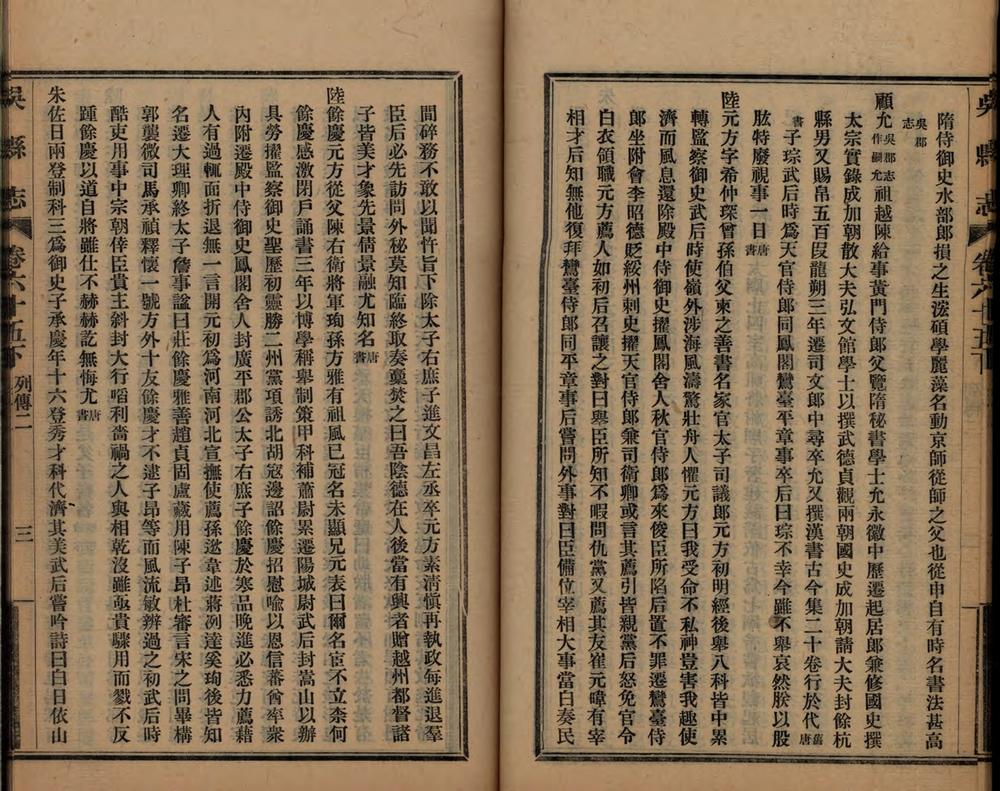 隋侍御史水部郎損之生泫碩學麗藻名動京師從師之父也從申自有時名書法甚高
吳郡志
顧允吳郡志作嗣允祖越陳給事黃門侍郎父覽隋秘書學士允永徽中歷遷起居郎兼修國史撰
太宗實錄成加朝散大夫弘文館學士以撰武德貞觀兩朝國史成加朝請大夫封餘杭
縣男又賜帛五百段龍朔三年遷司文郎中尋卒允又撰漢書古今集二十卷行於代舊唐
書子琮武后時爲天官侍郎同鳳閣鸞臺平章事卒后曰琮不幸今雖不舉哀然朕以股
肱特廢視事一日唐書
陸元方字希仲琛曾孫伯父柬之善書名家官太子司議郎元方初明經後舉八科皆中累
轉監察御史武后時使嶺外涉海風濤驚壯舟人懼元方曰我受命不私神豈害我趣使
濟而風息還除殿中侍御史擢鳳閣舍人秋官侍郎爲來俊臣所陷后置不罪遷鸞臺侍
郎坐附會李昭德貶綏州刺史擢天官侍郎兼司衛卿或言其薦引皆親黨后怒免官令
白衣領職元方薦人如初后召讓之對曰舉臣所知不暇問仇黨又薦其友崔元暐有宰
相才后知無他復拜鸞臺侍郎同平章事后嘗問外事對曰臣備位宰相大事當白奏民
間碎務不敢以聞忤旨下除太子右庶子進文昌左丞卒元方素清愼再執政每進退羣
臣后必先訪問外秘莫知臨終取奏藁焚之曰吾陰德在人後當有興者贈越州都督諸
子皆美才象先景倩景融尤知名唐書
陸餘慶元方從父陳右衛將軍珣孫方雅有祖風已冠名未顯兄元表曰爾名宦不立柰何
餘慶感激閉戶誦書三年以博學稱舉制策甲科補蕭尉累遷陽城尉武后封嵩山以辦
具勞擢監察御史聖歷初靈勝二州黨項誘北胡寇邊詔餘慶招慰喻以恩信蕃酋率衆
內附遷殿中侍御史鳳閣舍人封廣平郡公太子右庶子餘慶於寒品晚進必悉力薦藉
人有過輒面折退無一言開元初爲河南河北宣撫使薦孫逖韋述蔣冽達奚珣後皆知
名遷大理卿終太子詹事諡曰莊餘慶雅善趙貞固盧藏用陳子昂杜審言宋之問畢構
郭襲微司馬承禎釋懷一號方外十友餘慶才不逮子昂等而風流敏辨過之初武后時
酷吏用事中宗朝倖臣貴主斜封大行啗利嗇禍之人與相乾沒雖亟貴驟用而戮不反
踵餘慶以道自將雖仕不赫赫訖無悔尤唐書
朱佐日兩登制科三爲御史子承慶年十六登秀才科代濟其美武后嘗吟詩曰白日依山
吳縣志 卷六十五下 列傳二 三
吳縣志 卷六十五下